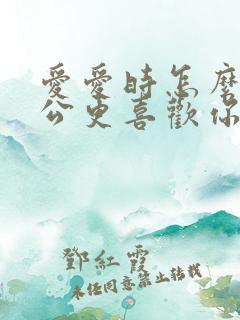 愛愛時怎麼
公更喜歡你
鄧紅霞
未经同意禁止转载